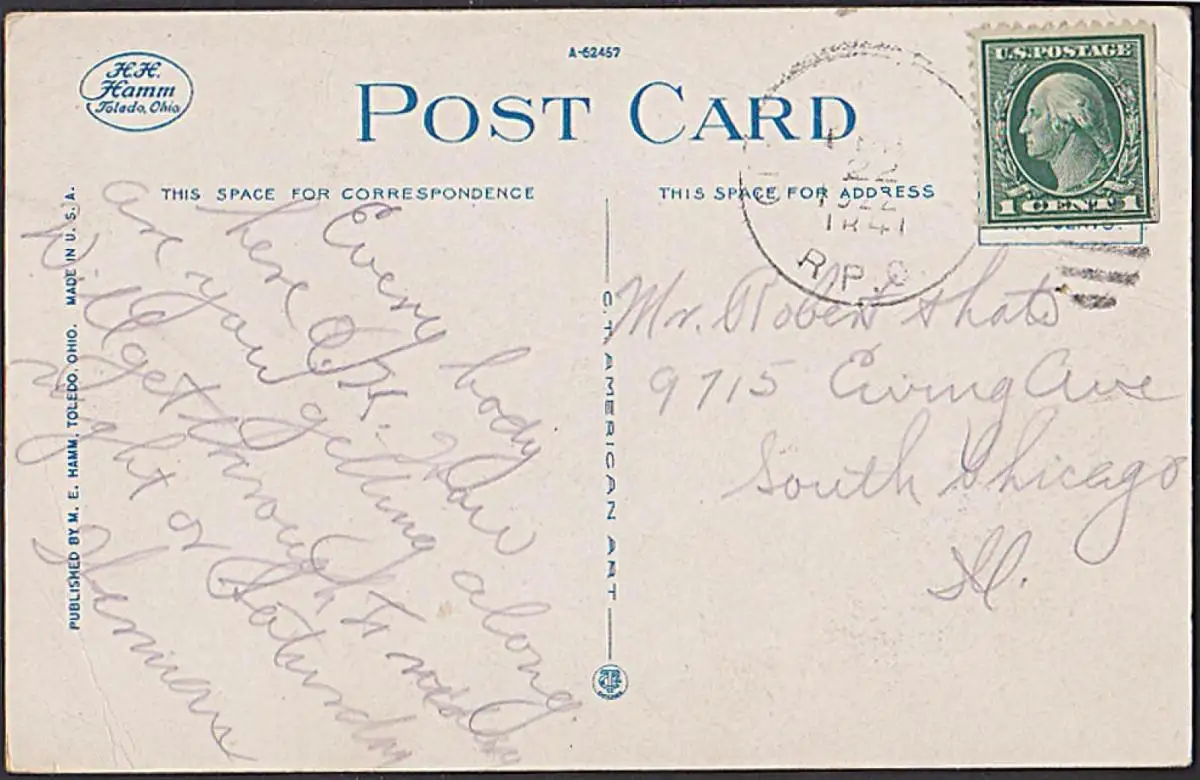 A-62467
H.H.
Hamm
Toledo, Ohio
POST CARD
U.S. POSTAGE
1 CENT 1
THIS SPACE FOR CORRESPONDENCE
THIS SPACE FOR ADDRESS
22
1922
R.P.O.
PUBLISHED BY M. E. HAMM, TOLEDO, OHIO. MADE IN U. S. A.
C. T. AMERICAN ART
Every body
here O.K. How
are you getting along
Will get through Friday
night or Saturday
Sherman
Mr. Robert
9715 Ewing Ave
South Chicago
Ill.